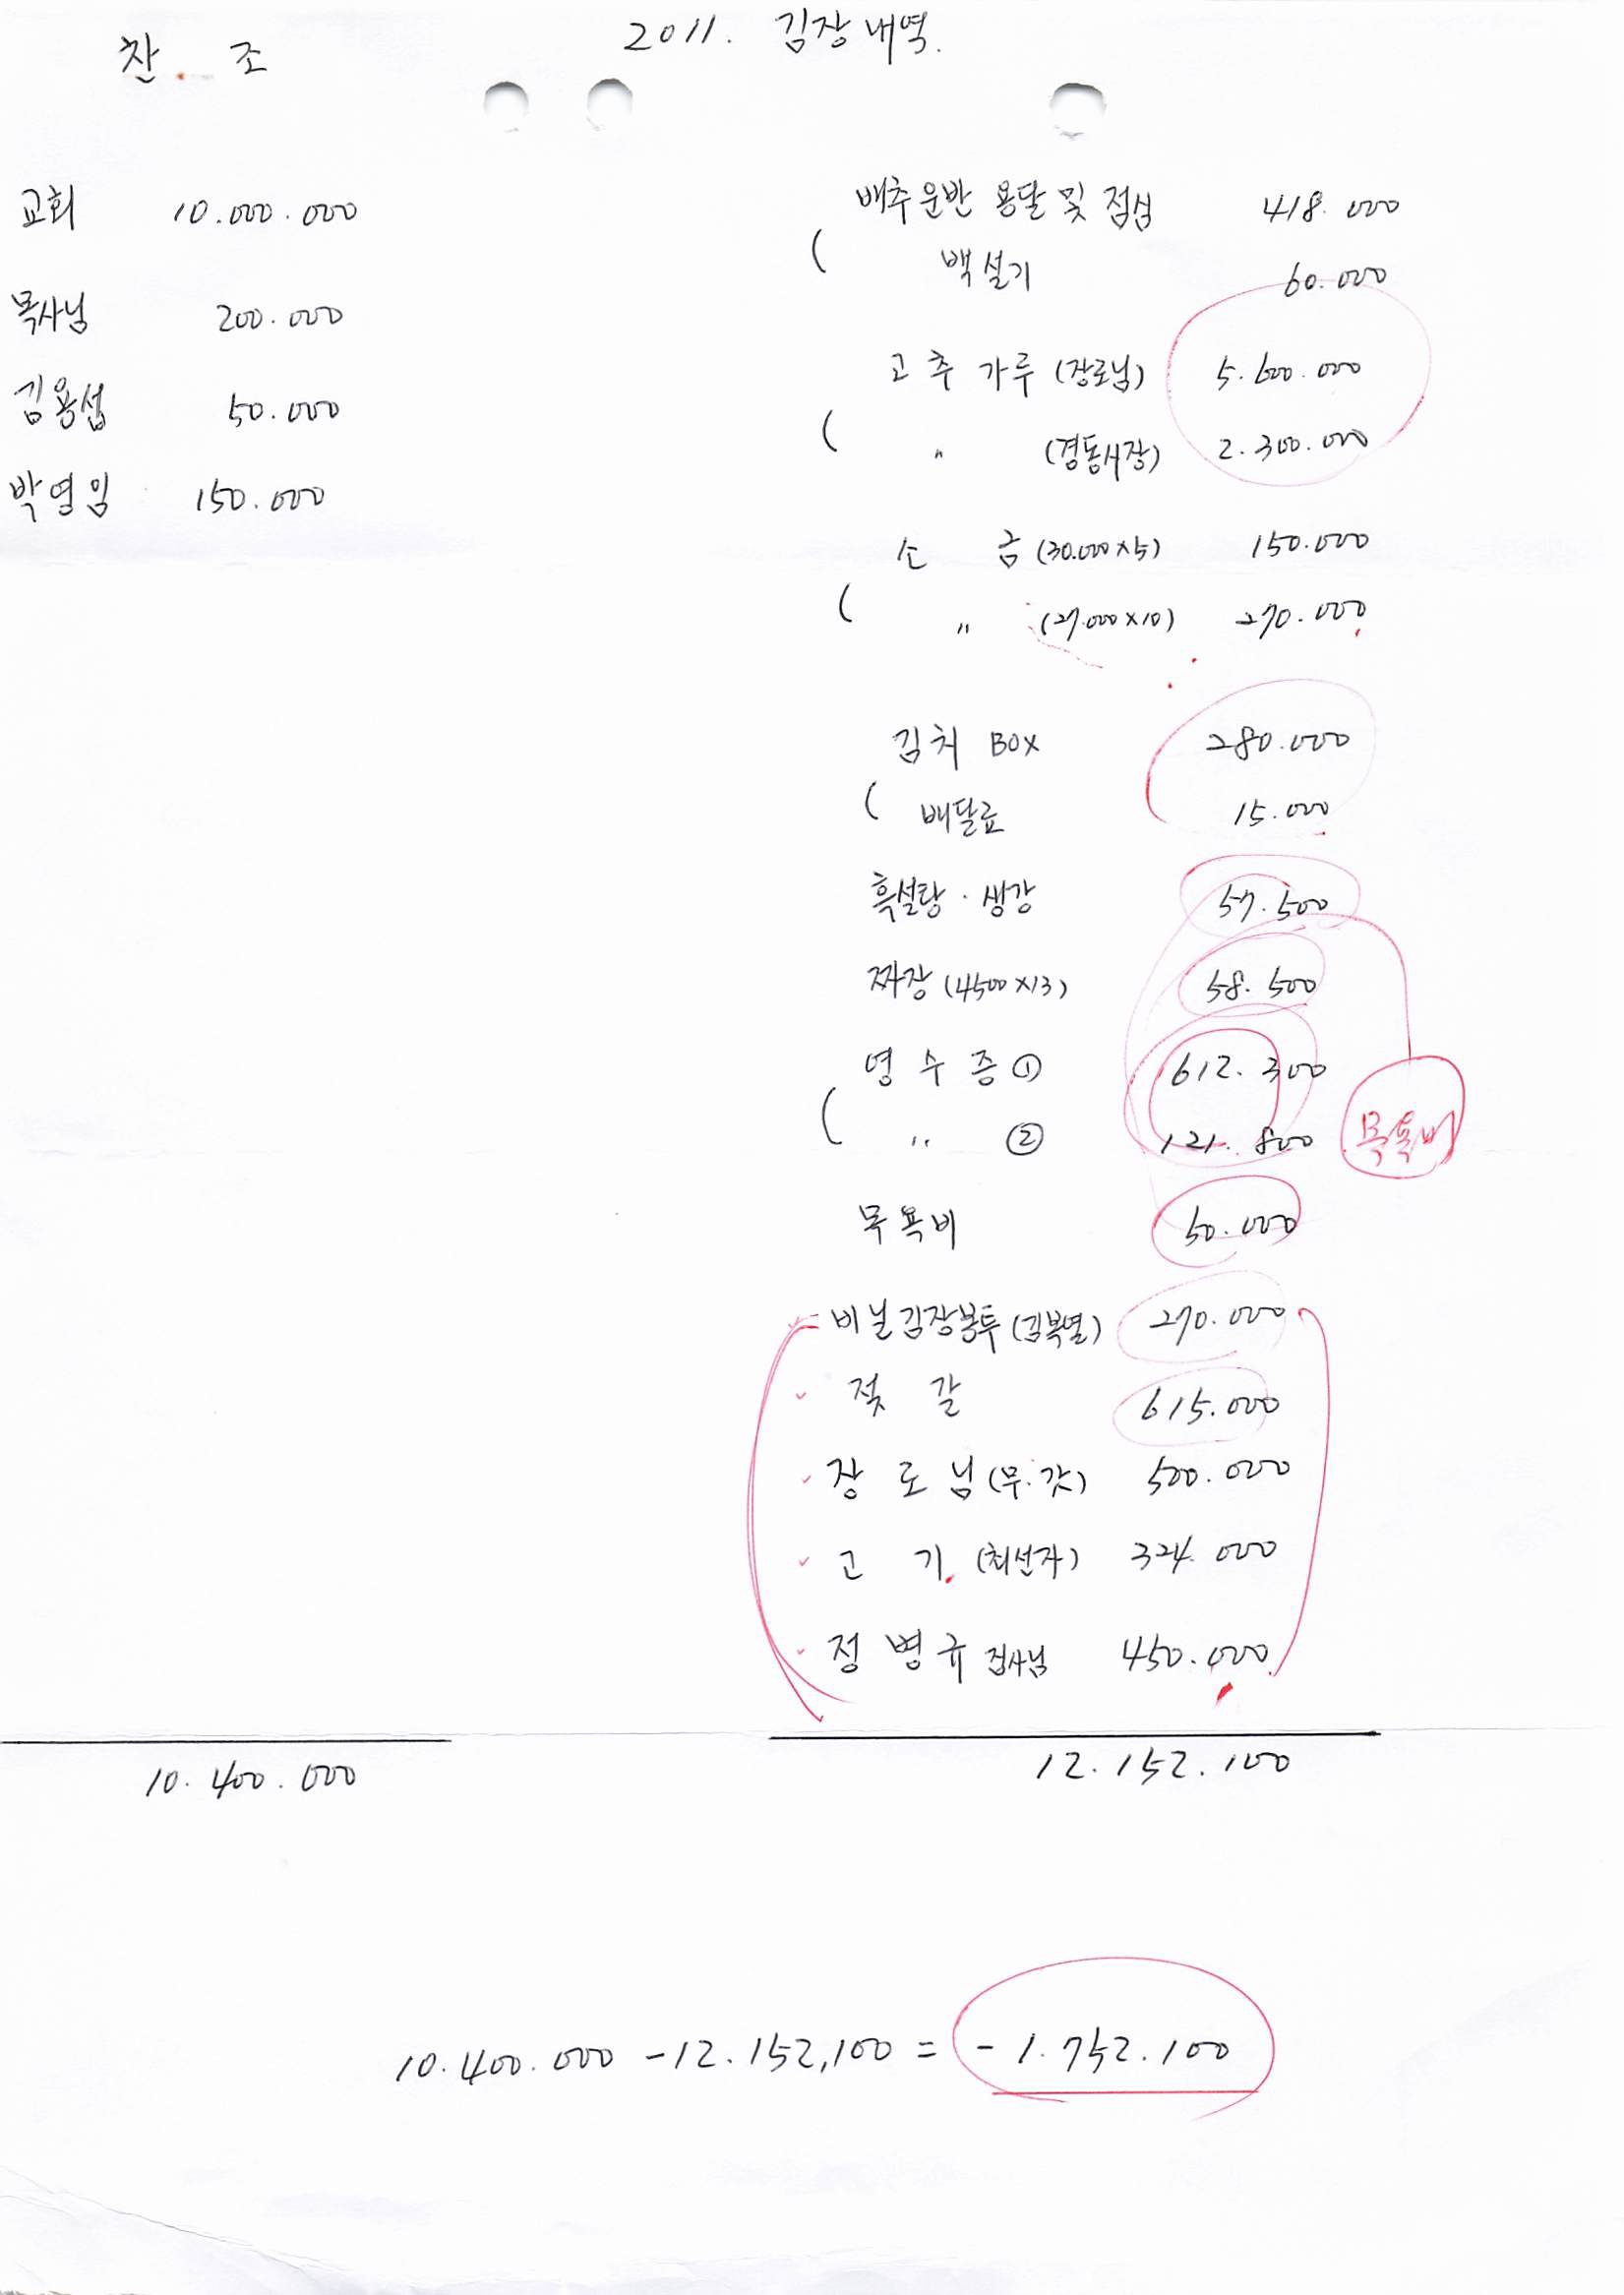 찬. 조
2011. 김장내역.
교회 10.000.000
목사님 200.000
김용섭 50.000
박영임 150.000
배추운반 용달 및 점심 418.000
( 백설기 60.000
고추가루 (장로님) 5.600.000
( 〃 (경동시장) 2.300.000
소 금 (30.000×5) 150.000
( 〃 (27.000×10) 270.000
김치 BOX 280.000
( 배달료 15.000
흑설탕 · 생강 57.500
짜장 (4500×13) 58.500
영수증 ① 612.300
( 〃 ② 121.800
목욕비
목욕비 50.000
비닐김장봉투 (김복열) 270.000
젓갈 615.000
장로님 (무.갓) 500.000
고기 (최선자) 324.000
정병규 집사님 450.000
10.400.000
12.152.100
10.400.000 - 12.152,100 = - 1.752.100